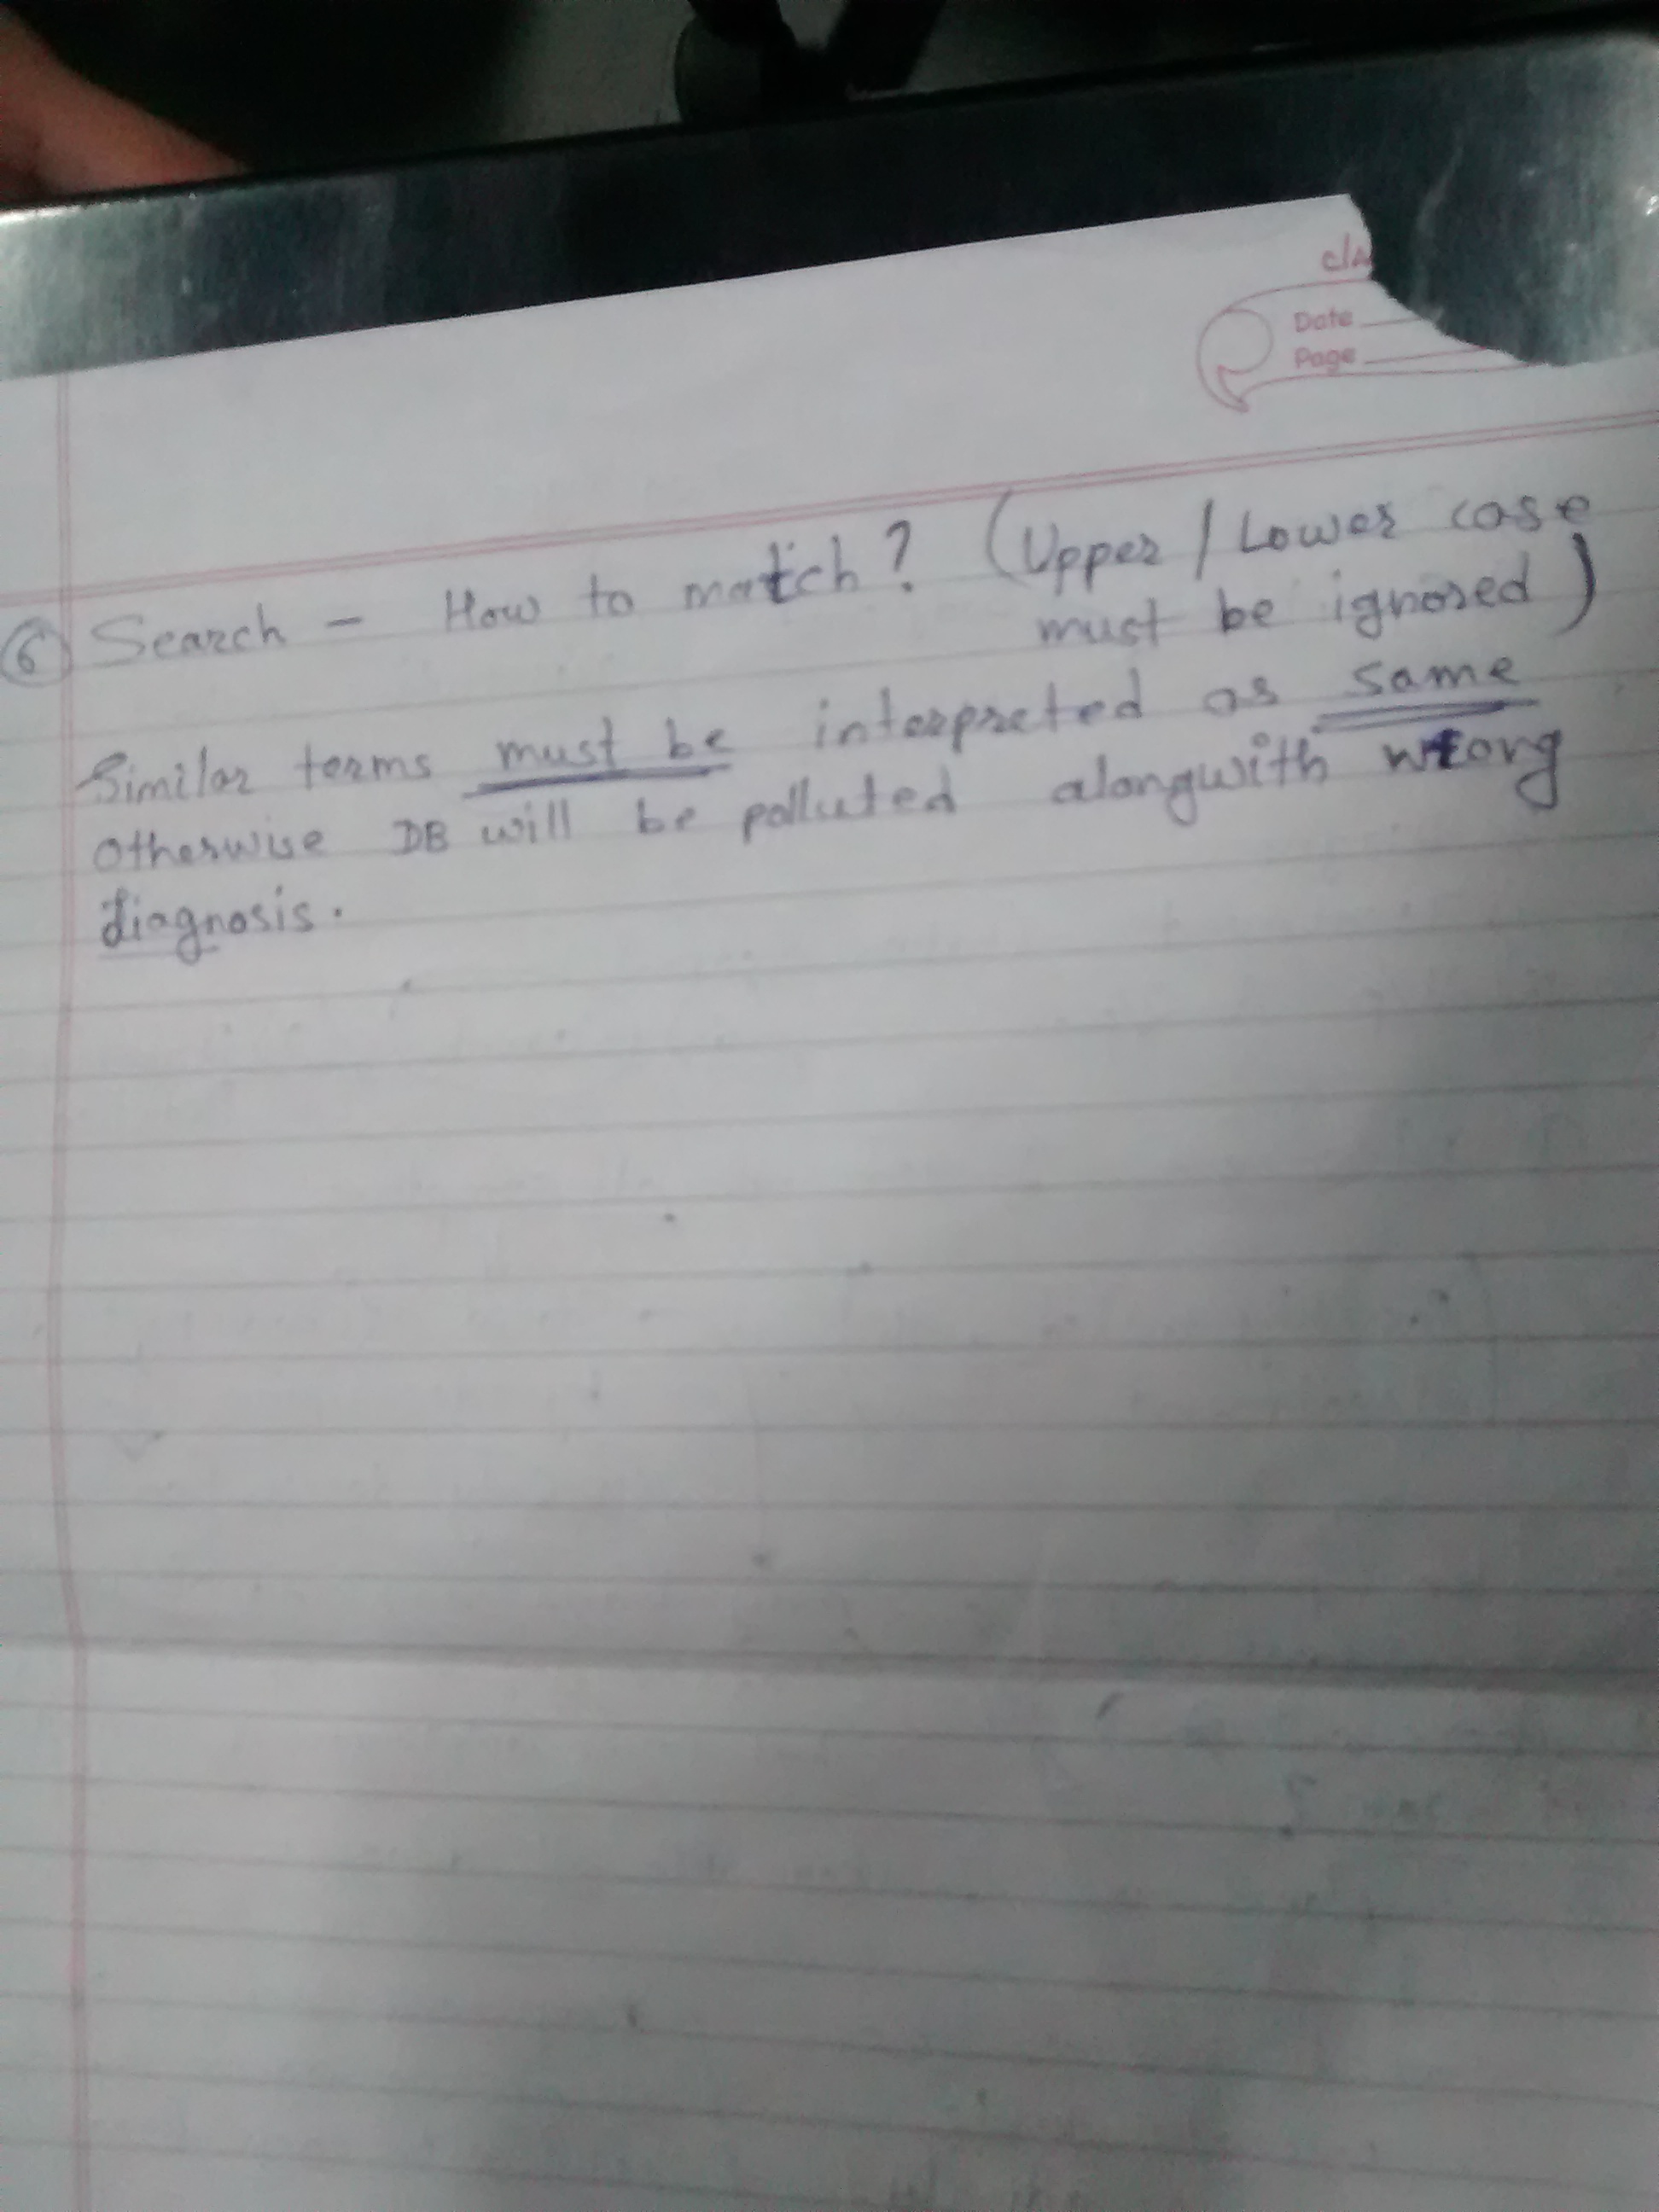 Date
Page
6 Search - How to match? (Upper / Lower case
must be ignored)
Similar terms must be interpreted as same
otherwise DB will be polluted alongwith wrong
diagnosis.